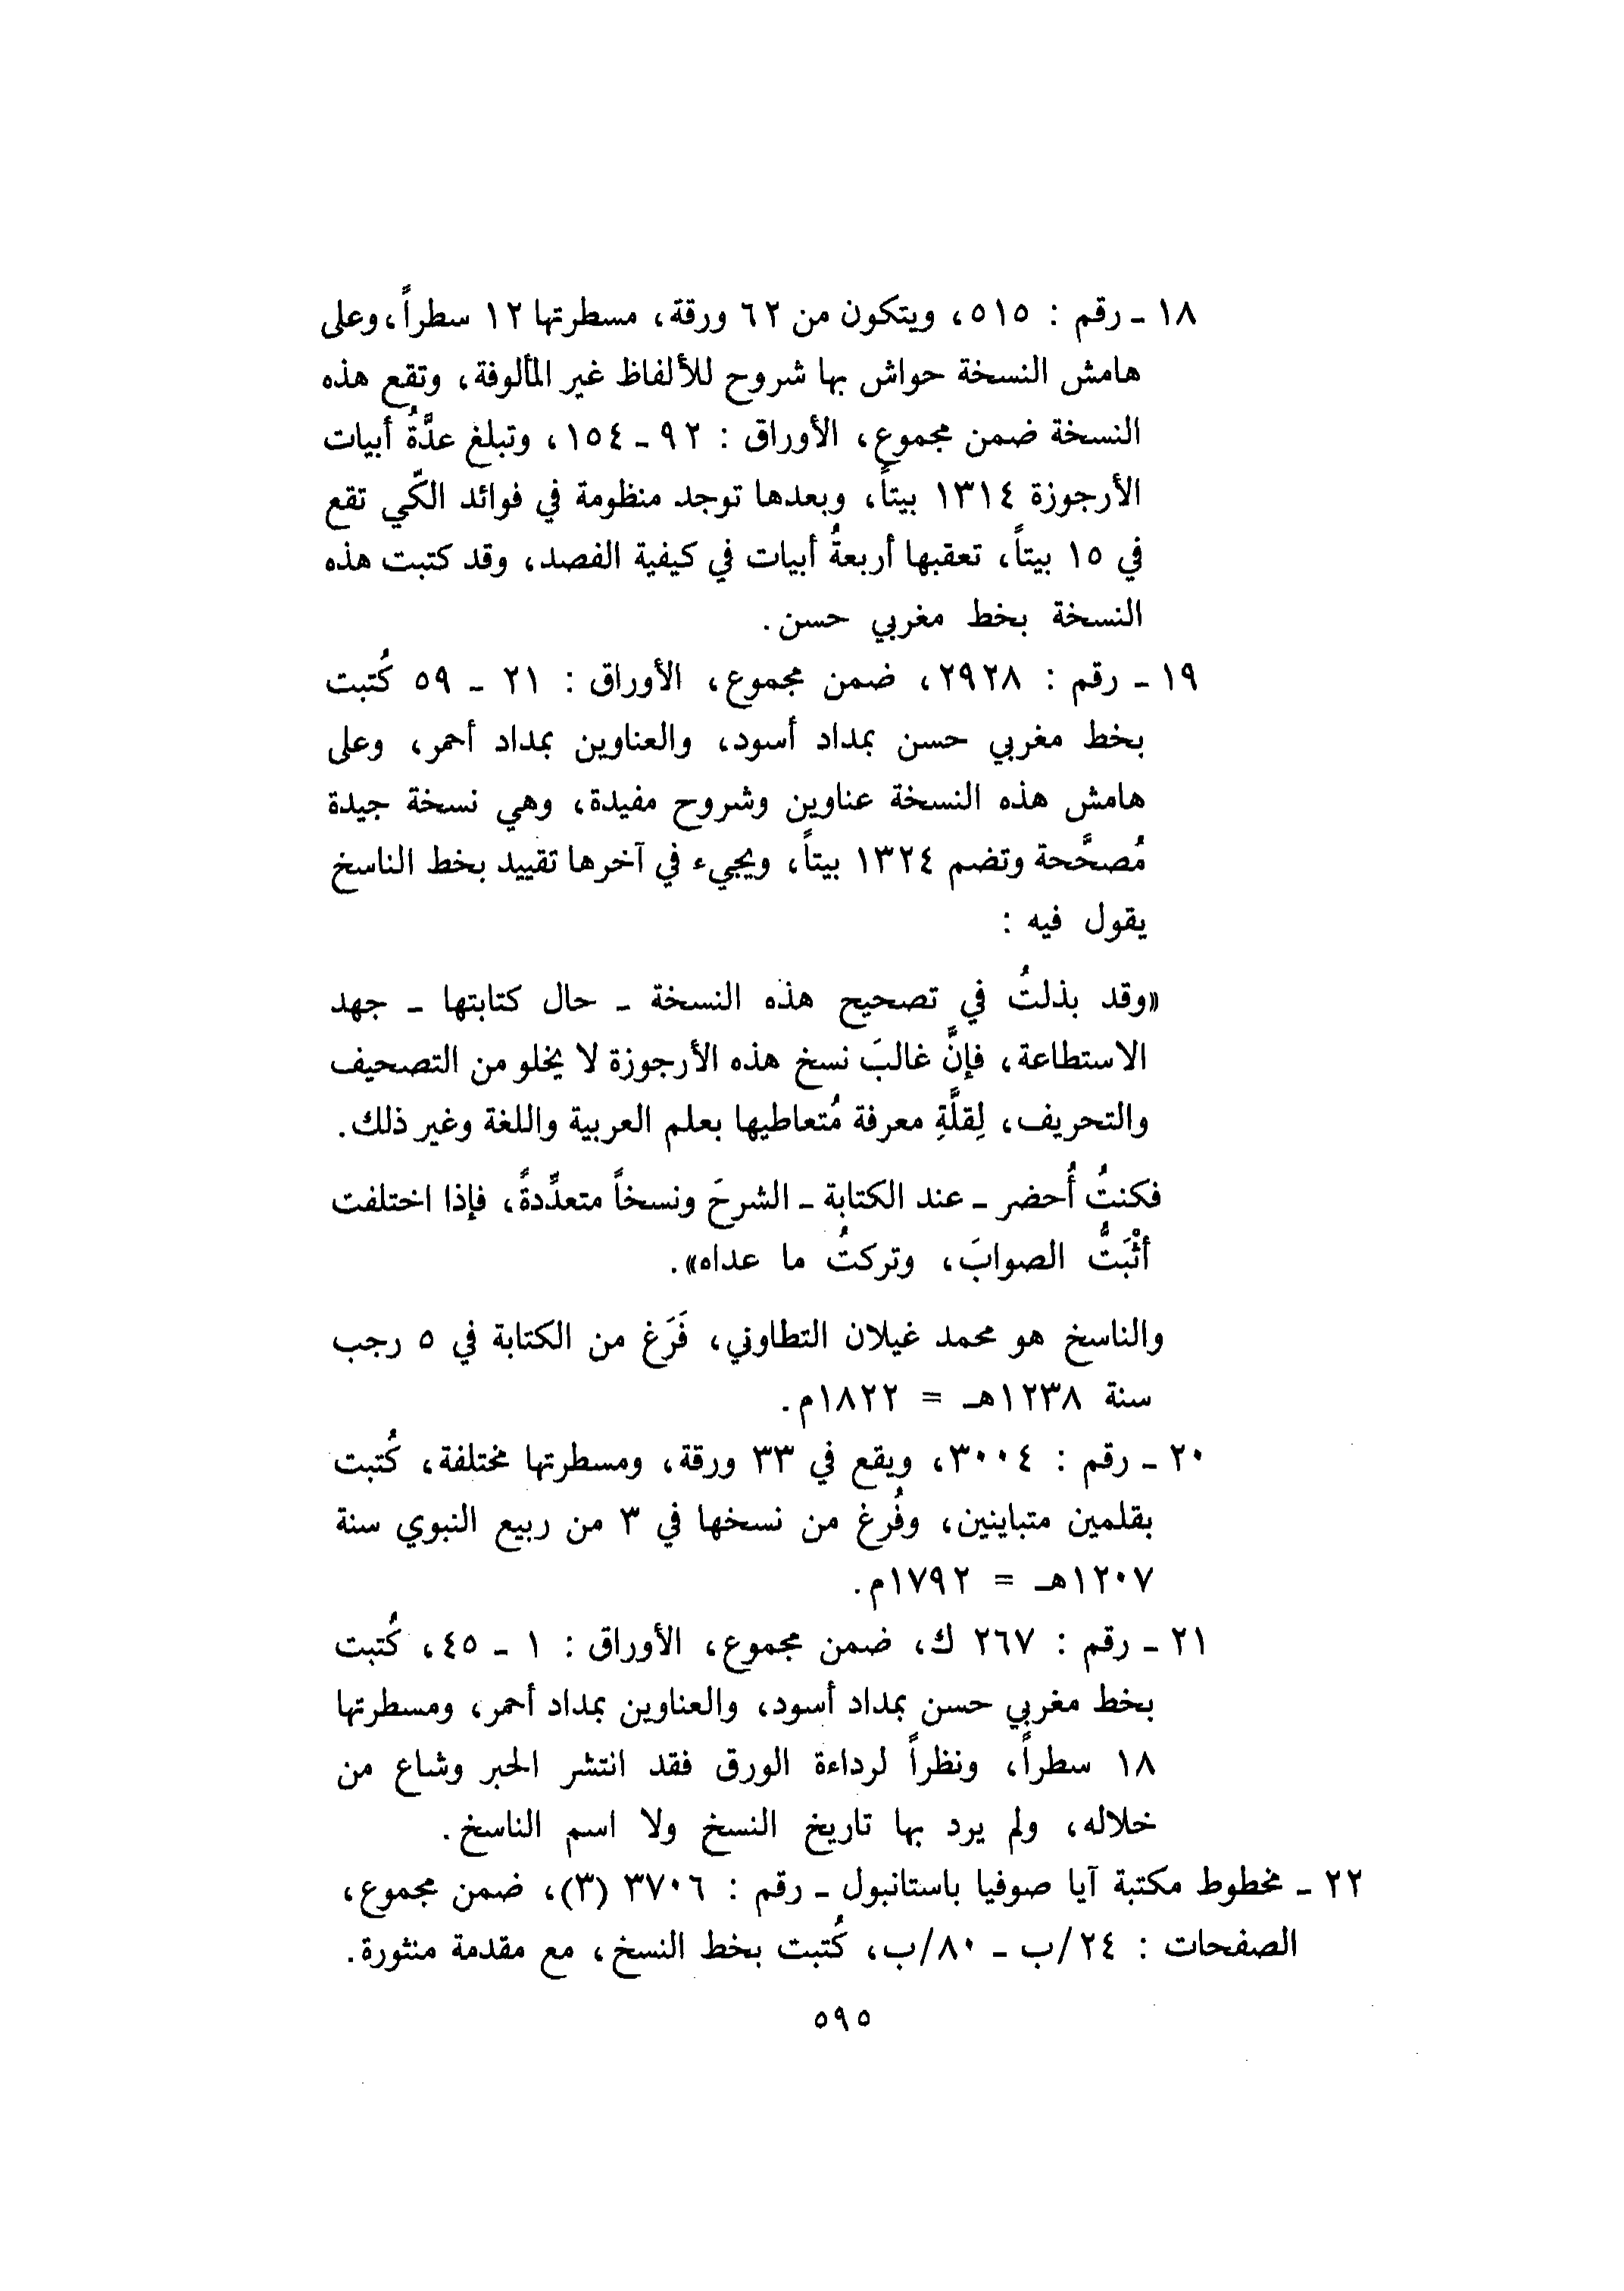 ١٨ ـ رقم : ٥١٥، ويتكون من ٦٢ ورقة، مسطرتها ١٢ سطراً، وعلى
هامش النسخة حواش بها شروح للألفاظ غير المألوفة، وتقع هذه
النسخة ضمن مجموع، الأوراق : ٩٢ ـ ١٥٤، وتبلغ عدَّةُ أبيات
الأرجوزة ١٣١٤ بيتاً، وبعدها توجد منظومة في فوائد الكّي تقع
في ١٥ بيتاً، تعقبها أربعةُ أبيات في كيفية الفصد، وقد كتبت هذه
النسخة بخط مغربي حسن.
١٩ ـ رقم : ٢٩٢٨، ضمن مجموع، الأوراق : ٢١ ـ ٥٩ كُتبت
بخط مغربي حسن بمداد أسود، والعناوين بمداد أحمر، وعلى
هامش هذه النسخة عناوين وشروح مفيدة، وهي نسخة جيدة
مُصحَّحة وتضم ١٣٢٤ بيتاً، ويجيء في آخرها تقييد بخط الناسخ
يقول فيه :
«وقد بذلتُ في تصحيح هذه النسخة ـ حال كتابتها ـ جهد
الاستطاعة، فإنَّ غالبَ نسخ هذه الأرجوزة لا يخلو من التصحيف
والتحريف، لِقلَّةِ معرفة مُتعاطيها بعلم العربية واللغة وغير ذلك.
فكنتُ أُحضر ـ عند الكتابة ـ الشرحَ ونسخاً متعدِّدةً، فإذا اختلفت
أثْبَتُّ الصوابَ، وتركتُ ما عداه».
والناسخ هو محمد غيلان التطاوني، فَرَغ من الكتابة في ٥ رجب
سنة ١٢٣٨هـ = ١٨٢٢م.
٢٠ ـ رقم : ٣٠٠٤، ويقع في ٣٣ ورقة، ومسطرتها مختلفة، كُتبت
بقلمين متباينين، وفُرغ من نسخها في ٣ من ربيع النبوي سنة
١٢٠٧هـ = ١٧٩٢م.
٢١ ـ رقم : ٢٦٧ ك، ضمن مجموع، الأوراق : ١ ـ ٤٥، كُتبت
بخط مغربي حسن بمداد أسود، والعناوين بمداد أحمر، ومسطرتها
١٨ سطراً، ونظراً لرداءة الورق فقد انتشر الحبر وشاع من
خلاله، ولم يرد بها تاريخ النسخ ولا اسم الناسخ.
٢٢ ـ مخطوط مكتبة آيا صوفيا باستانبول ـ رقم : ٣٧٠٦ (٣)، ضمن مجموع،
الصفحات : ٢٤/ب ـ ٨٠/ب، كُتبت بخط النسخ، مع مقدمة منثورة.
٥٩٥